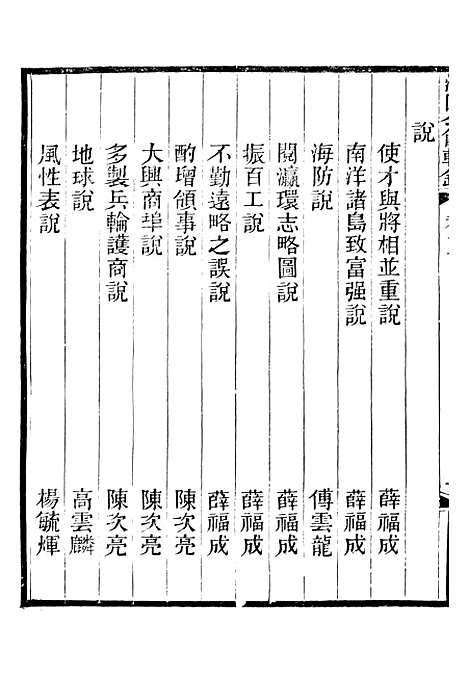 說
使才與將相並重說 薛福成
南洋諸島致富强說 薛福成
海防說 傅雲龍
閱瀛環志略圖說 薛福成
振百工說 薛福成
不勤遠略之誤說 薛福成
酌增領事說 陳次亮
大興商埠說 陳次亮
多製兵輪護商說 陳次亮
地球說 高雲麟
風性表說 楊毓煇